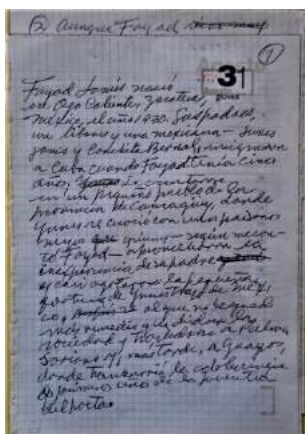 ② Aunque Fayad,
①
31
Fayad Jamís nació
en Ojo Caliente, Zacatecas,
México, el año 1930. Sus padres,
un libanés y una mexicana —
y Conchita Bernal, emigraron
a Cuba cuando Fayad tenía cinco
años. Se
en un pequeño pueblo de la
provincia de Camagüey, donde
se asoció con unos paisanos
— según me con-
tó Fayad — aprovecharon la
inexperiencia de su padre
y casi agotaron la pequeña
fortuna de
co, al que no le quedó
más remedio que
sociedad y trasladarse a
y, más tarde, a Guayos,
donde transcurrió la adolescencia
y primeros años de la juventud
del poeta.